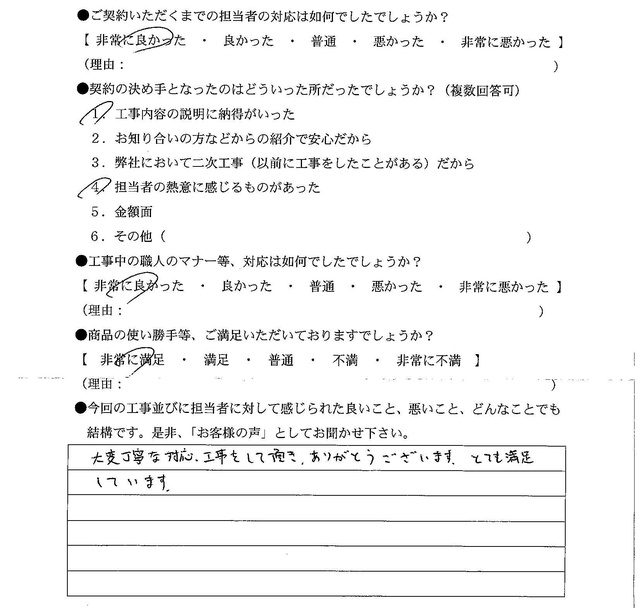 ●ご契約いただくまでの担当者の対応は如何でしたでしょうか？
【 非常に良かった ・ 良かった ・ 普通 ・ 悪かった ・ 非常に悪かった 】
（理由： ）
●契約の決め手となったのはどういった所だったでしょうか？（複数回答可）
1．工事内容の説明に納得がいった
2．お知り合いの方などからの紹介で安心だから
3．弊社において二次工事（以前に工事をしたことがある）だから
4．担当者の熱意に感じるものがあった
5．金額面
6．その他（ ）
●工事中の職人のマナー等、対応は如何でしたでしょうか？
【 非常に良かった ・ 良かった ・ 普通 ・ 悪かった ・ 非常に悪かった 】
（理由： ）
●商品の使い勝手等、ご満足いただいておりますでしょうか？
【 非常に満足 ・ 満足 ・ 普通 ・ 不満 ・ 非常に不満 】
（理由： ）
●今回の工事並びに担当者に対して感じられた良いこと、悪いこと、どんなことでも
結構です。是非、「お客様の声」としてお聞かせ下さい。
大変丁寧な対応、工事をして頂き、ありがとうございます。とても満足
しています。